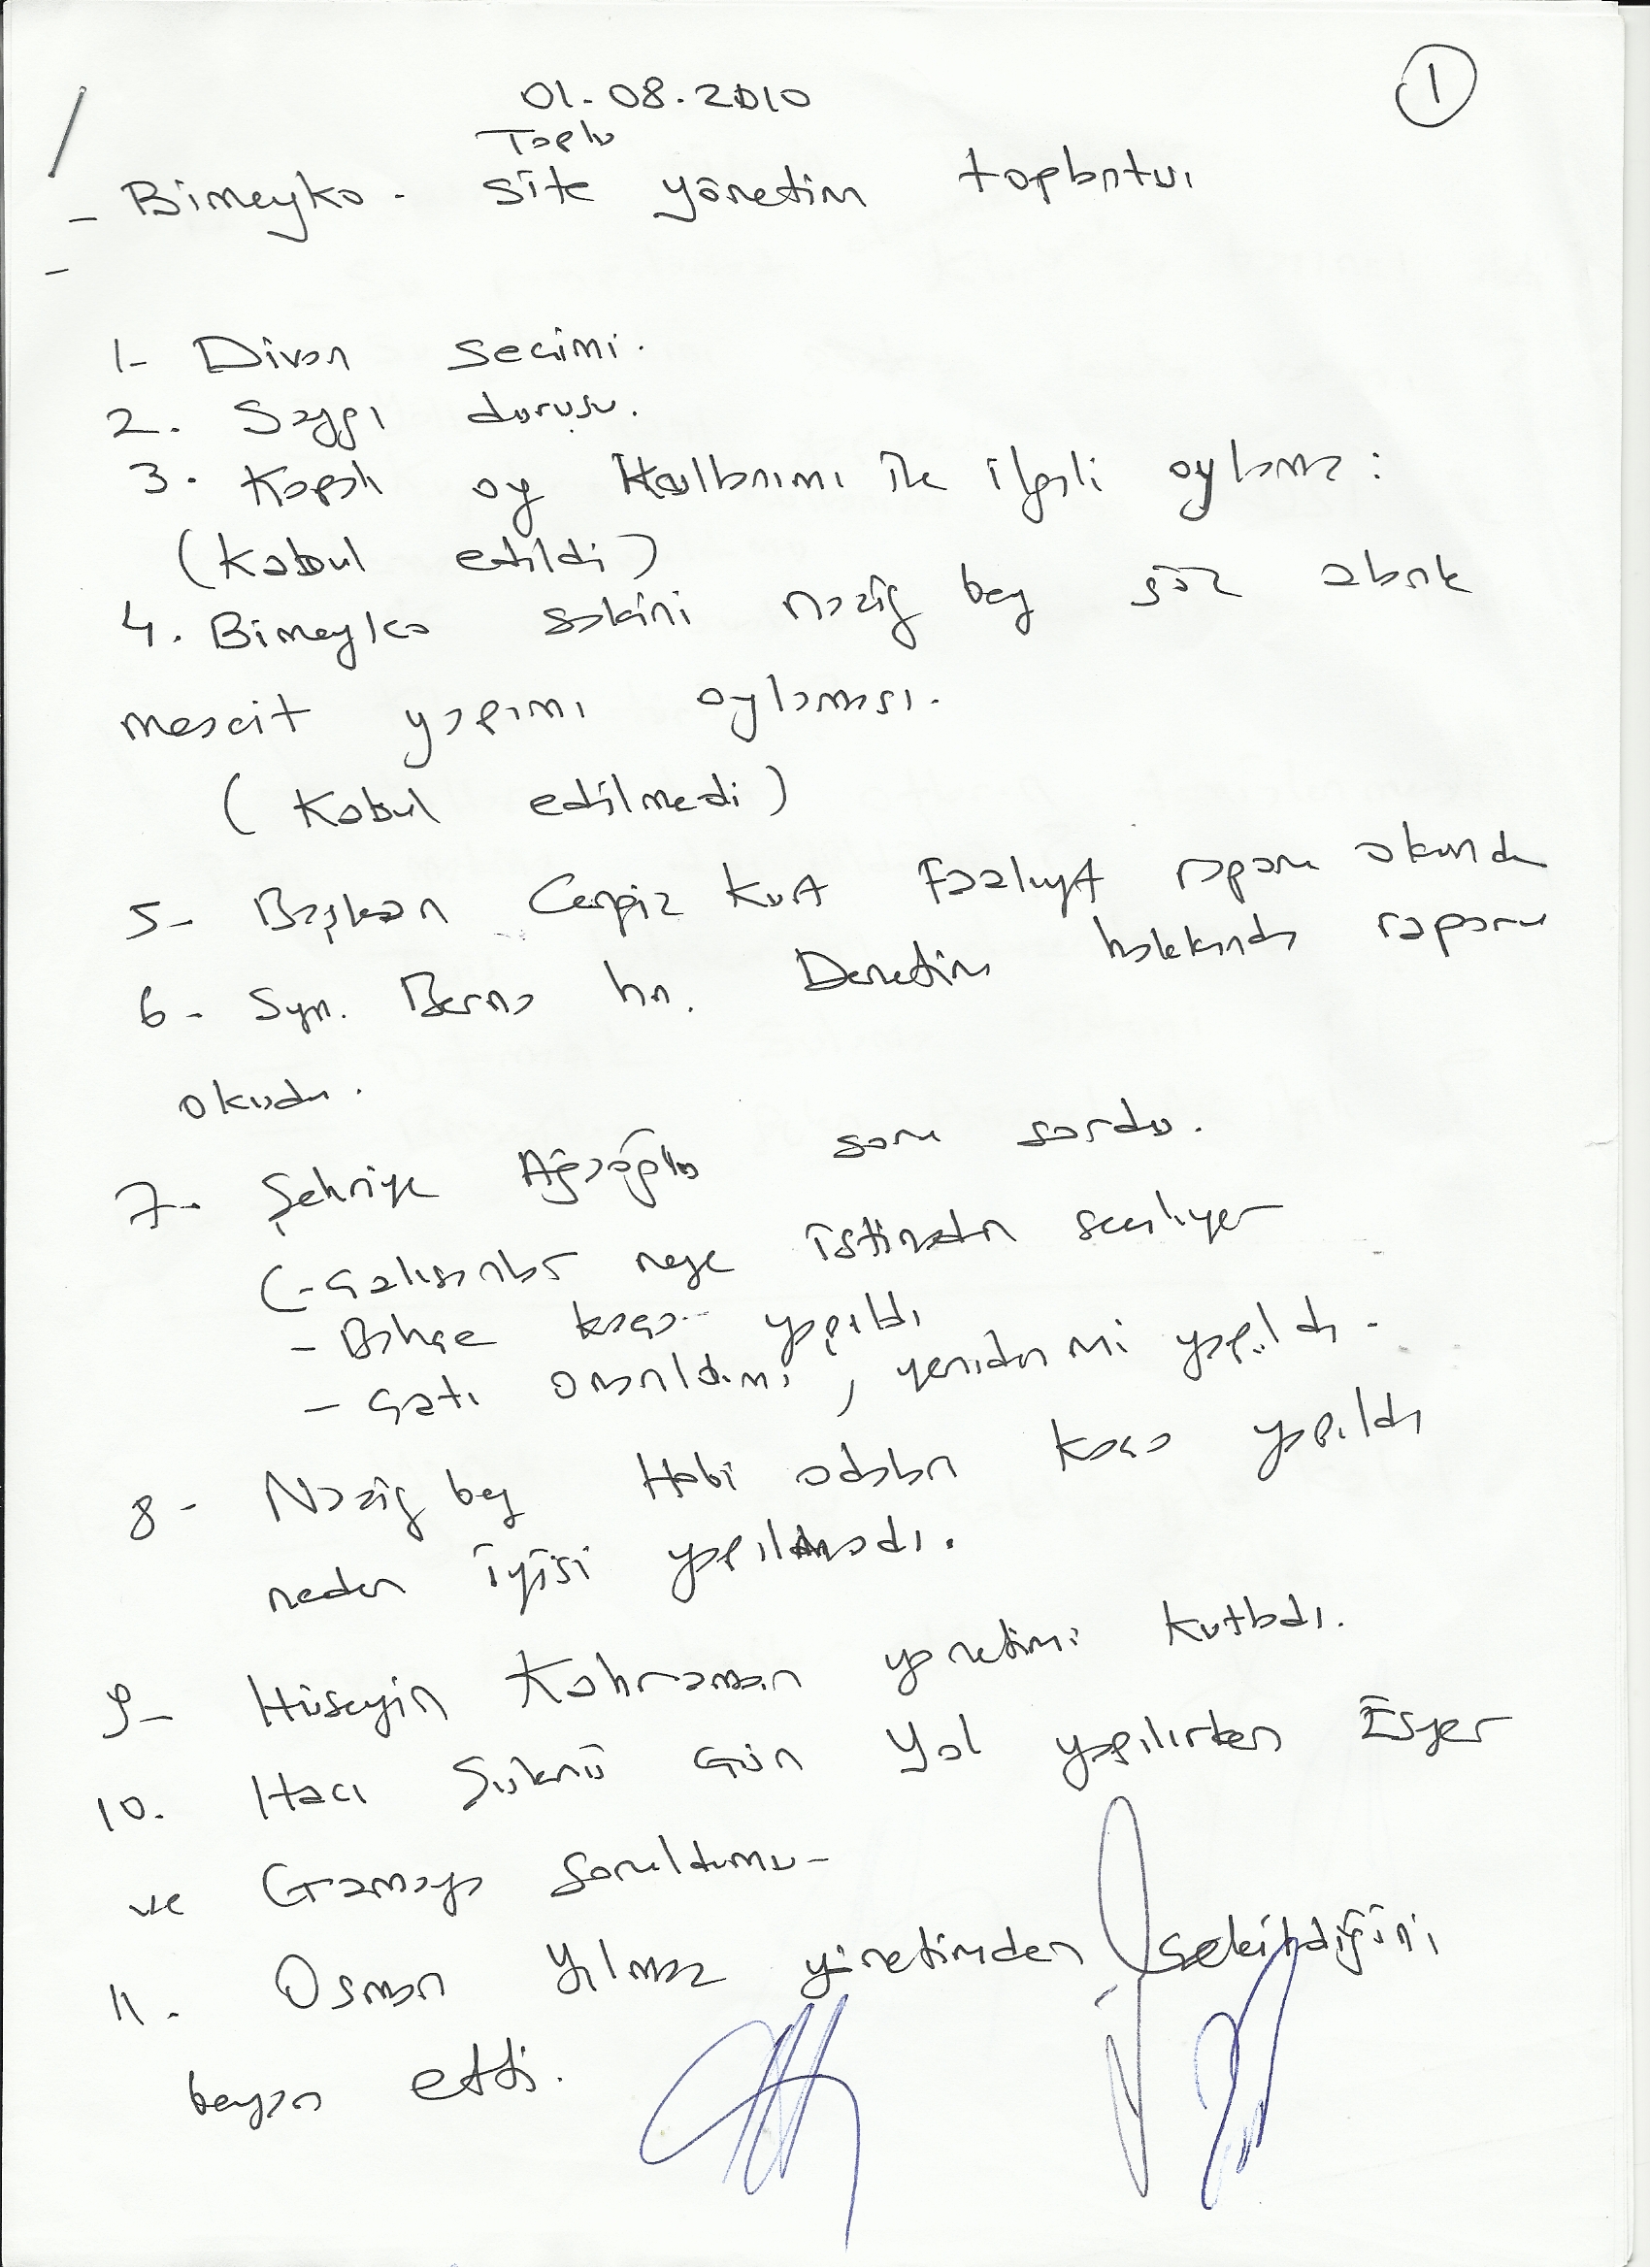 1
01-08-2010
Toplu
- Bimeyko - site yönetim toplantısı
-
1- Divan seçimi.
2. Saygı duruşu.
3. Kapalı oy kullanımı ile ilgili oylama:
(Kabul edildi)
4. Bimeyko sakini Nazif bey söz alarak
mescit yapımı oylaması.
(Kabul edilmedi)
5- Başkan Cengiz Kurt Faaliyet raporu okundu
6- Syn. Berna hn. Denetim hakkında raporu
okudu.
7- Şehriye Ağaoğlu soru sordu.
(-Çalışanlar neye istinaden seçiliyor
- Bahçe kaça yapıldı
- Çatı onarıldımı, yeniden mi yapıldı.
8- Nazif bey Hobi odaları kaça yapıldı
neden iyisi yapılmadı.
9- Hüseyin Kahraman yönetimi kutladı.
10. Hacı Şükrü Gün Yol yapılırken Esper
ve Gramaya soruldumu-
11. Osman Yılmaz yönetimden çekildiğini
beyan etti.